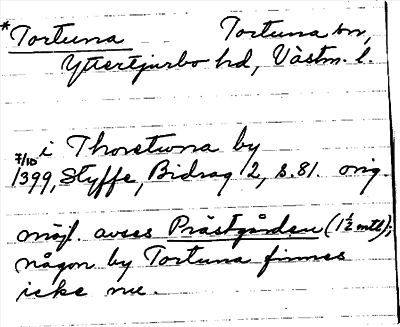 *Tortuna Tortuna sn,
Yttertjurbo hd, Västm. l.
i Thorstuna by
7/10 1399, Styffe, Bidrag 2, s. 81. orig.
möjl. avses Prästgården (1½ mtl);
någon by Tortuna finnes
icke nu.